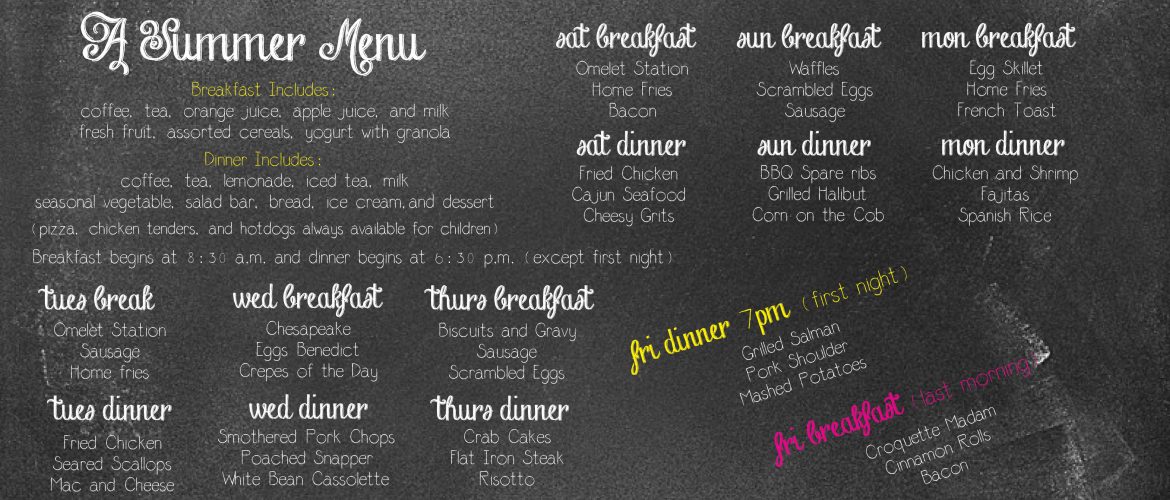 A Summer Menu
Breakfast Includes:
coffee, tea, orange juice, apple juice, and milk
fresh fruit, assorted cereals, yogurt with granola
Dinner Includes:
coffee, tea, lemonade, iced tea, milk
seasonal vegetable, salad bar, bread, ice cream, and dessert
(pizza, chicken tenders, and hotdogs always available for children)
Breakfast begins at 8:30 a.m. and dinner begins at 6:30 p.m. (except first night)
sat breakfast
Omelet Station
Home Fries
Bacon
sun breakfast
Waffles
Scrambled Eggs
Sausage
mon breakfast
Egg Skillet
Home Fries
French Toast
sat dinner
Fried Chicken
Cajun Seafood
Cheesy Grits
sun dinner
BBQ Spare ribs
Grilled Halibut
Corn on the Cob
mon dinner
Chicken and Shrimp
Fajitas
Spanish Rice
tues break
Omelet Station
Sausage
Home fries
wed breakfast
Chesapeake
Eggs Benedict
Crepes of the Day
thurs breakfast
Biscuits and Gravy
Sausage
Scrambled Eggs
tues dinner
Fried Chicken
Seared Scallops
Mac and Cheese
wed dinner
Smothered Pork Chops
Poached Snapper
White Bean Cassolette
thurs dinner
Crab Cakes
Flat Iron Steak
Risotto
fri dinner 7pm (first night)
Grilled Salman
Pork Shoulder
Mashed Potatoes
fri breakfast (last morning)
Croquette Madam
Cinnamon Rolls
Bacon